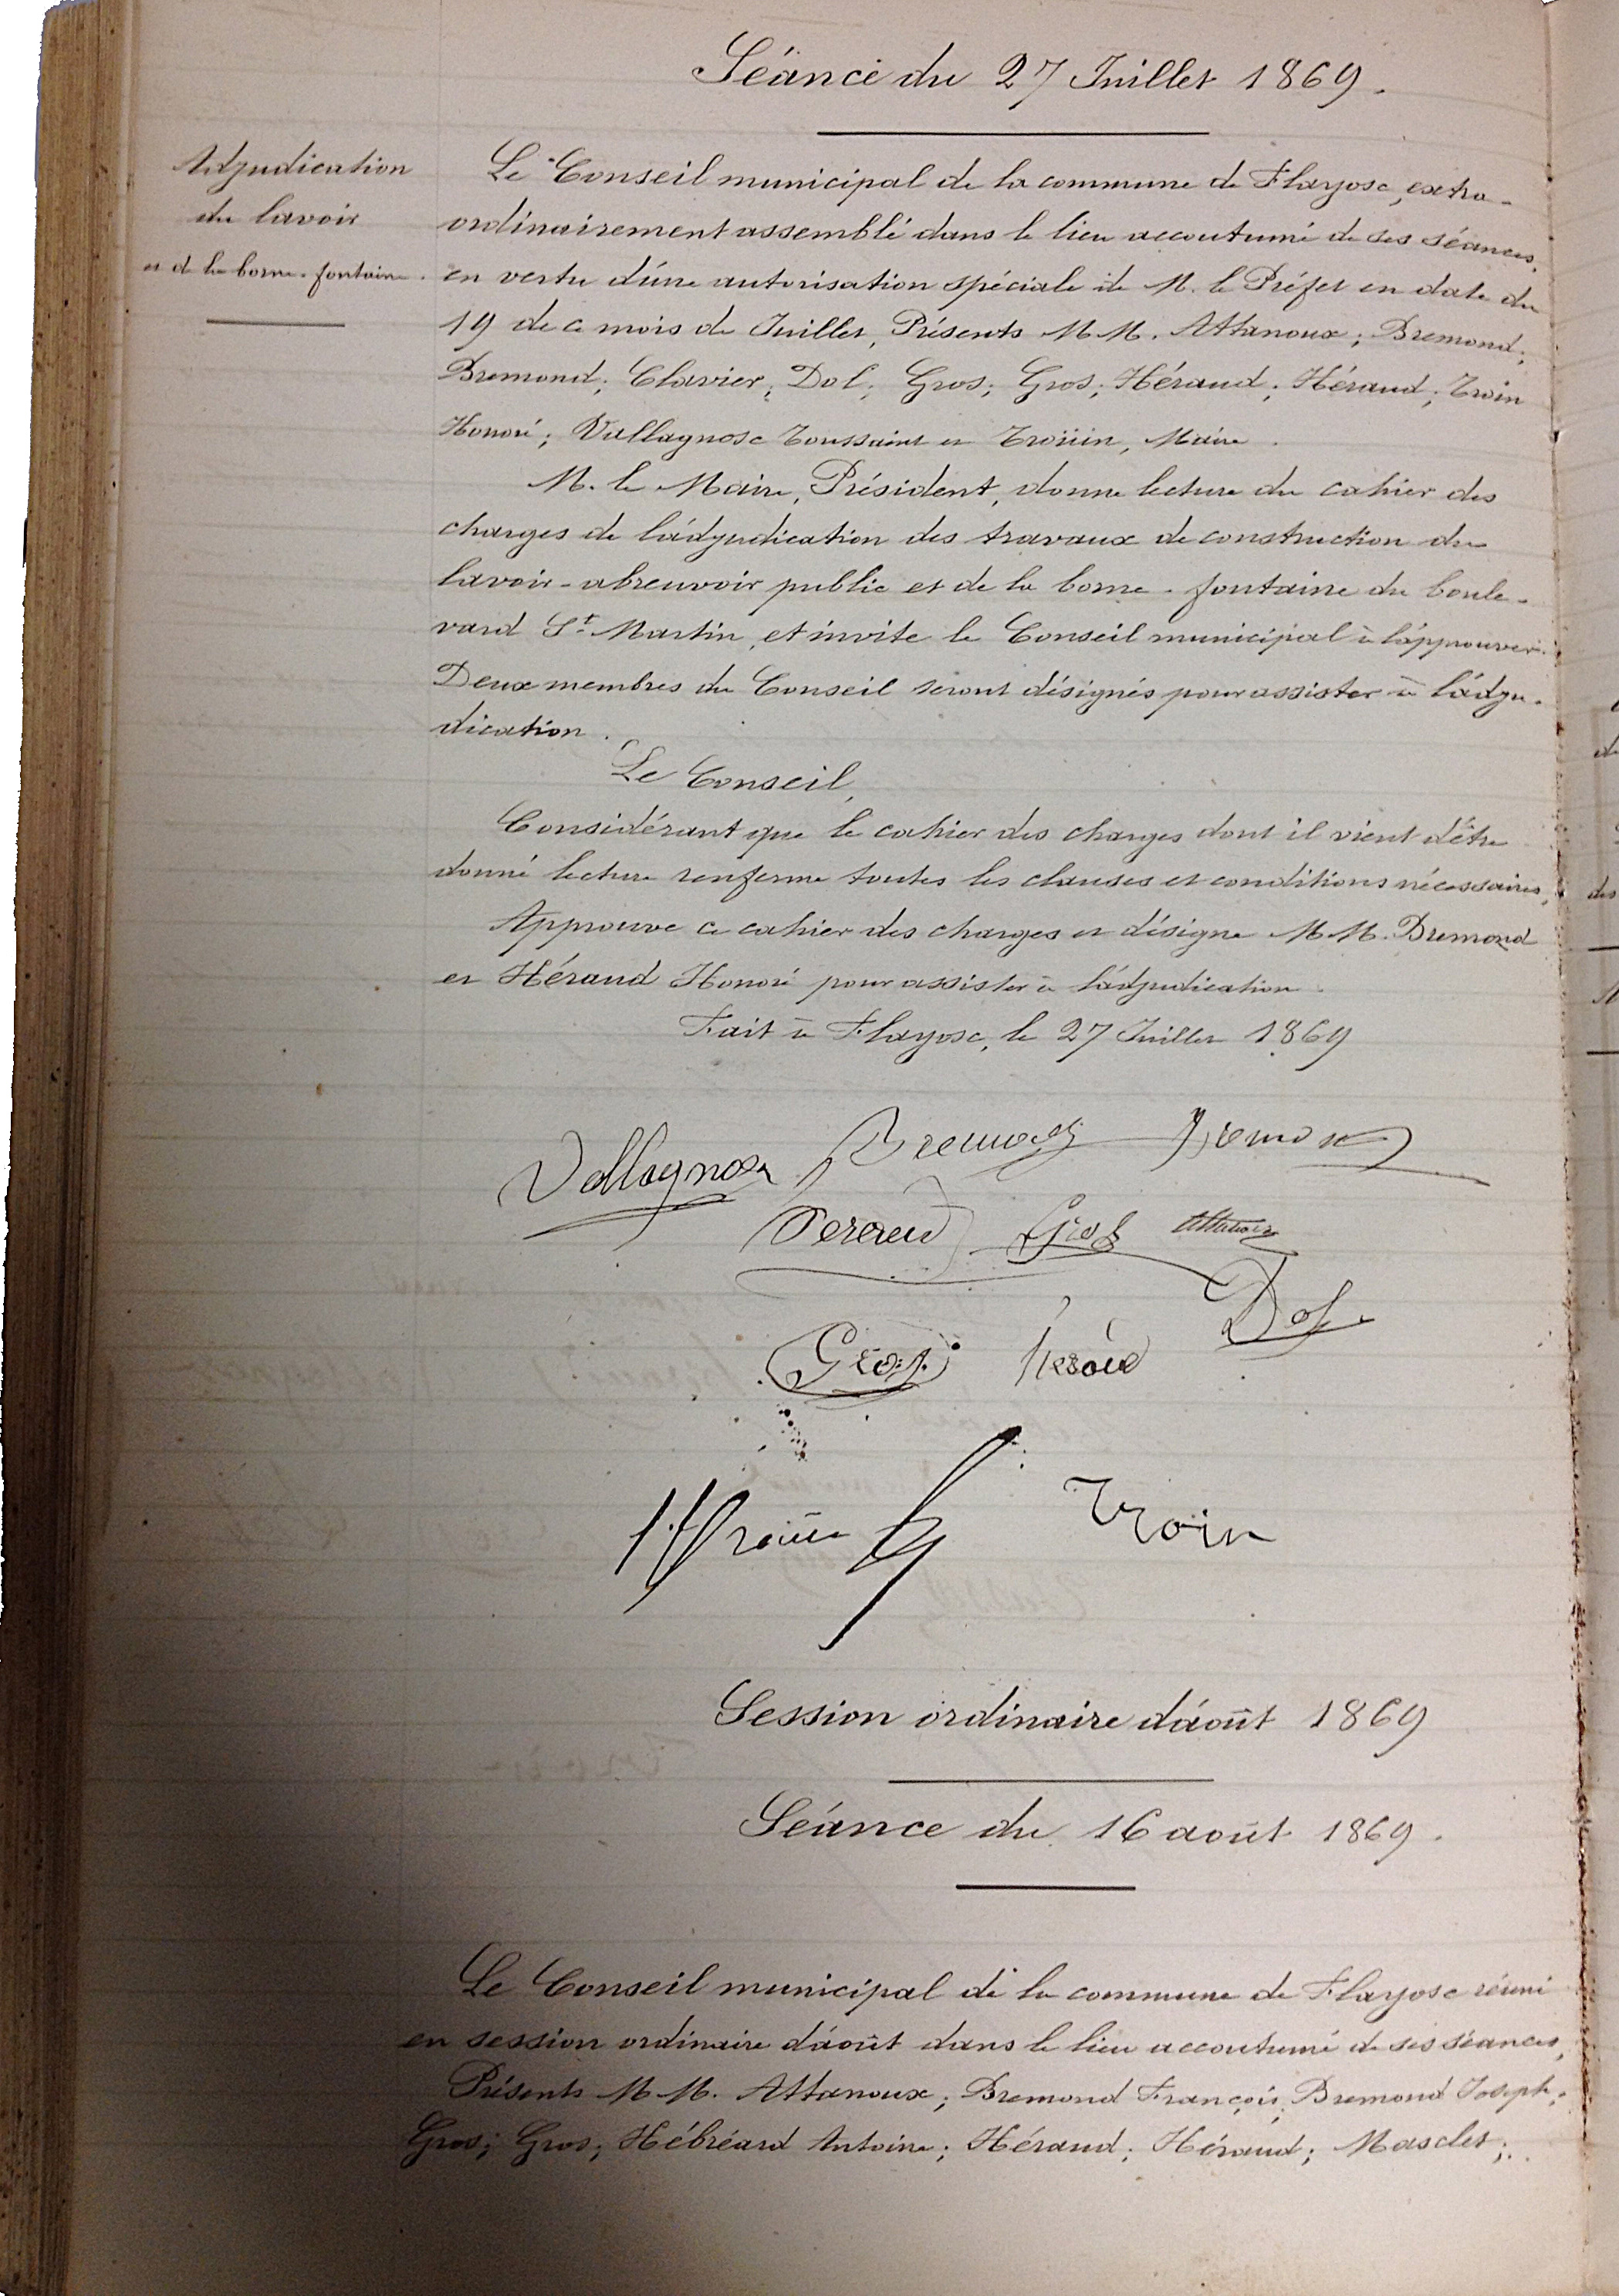 Séance du 27 Juillet 1869.
Adjudication
du lavoir
et de la borne-fontaine.
Le Conseil municipal de la commune de Flayosc, extra-
ordinairement assemblé dans le lieu accoutumé de ses séances,
en vertu d'une autorisation spéciale de M. le Préfet en date du
19 de ce mois de Juillet, Présents MM. Attanoux; Bremond;
Bremond; Clavier; Dol; Gros; Gros; Héraud; Héraud; Troin
Honoré; Vallagnosc Toussaint et Troüin, Maire.
M. le Maire, Président, donne lecture du cahier des
charges de l'adjudication des travaux de construction du
lavoir-abreuvoir public et de la borne-fontaine du boule-
vard St Martin, et invite le Conseil municipal à l'approuver.
Deux membres du Conseil seront désignés pour assister à l'adju-
dication.
Le Conseil,
Considérant que le cahier des charges dont il vient d'être
donné lecture renferme toutes les clauses et conditions nécessaires,
Approuve ce cahier des charges et désigne MM. Bremond
et Héraud Honoré pour assister à l'adjudication.
Fait à Flayosc, le 27 Juillet 1869
Vallagnosc Bremond Bremond
Gros Attanoux
Dol
Gros Héraud
Troin
Session ordinaire d'août 1869
Séance du 16 août 1869.
Le Conseil municipal de la commune de Flayosc réuni
en session ordinaire d'août dans le lieu accoutumé de ses séances,
Présents MM. Attanoux; Bremond François; Bremond Joseph;
Gros; Gros; Hébréard Antoine; Héraud; Héraud; Masclet;